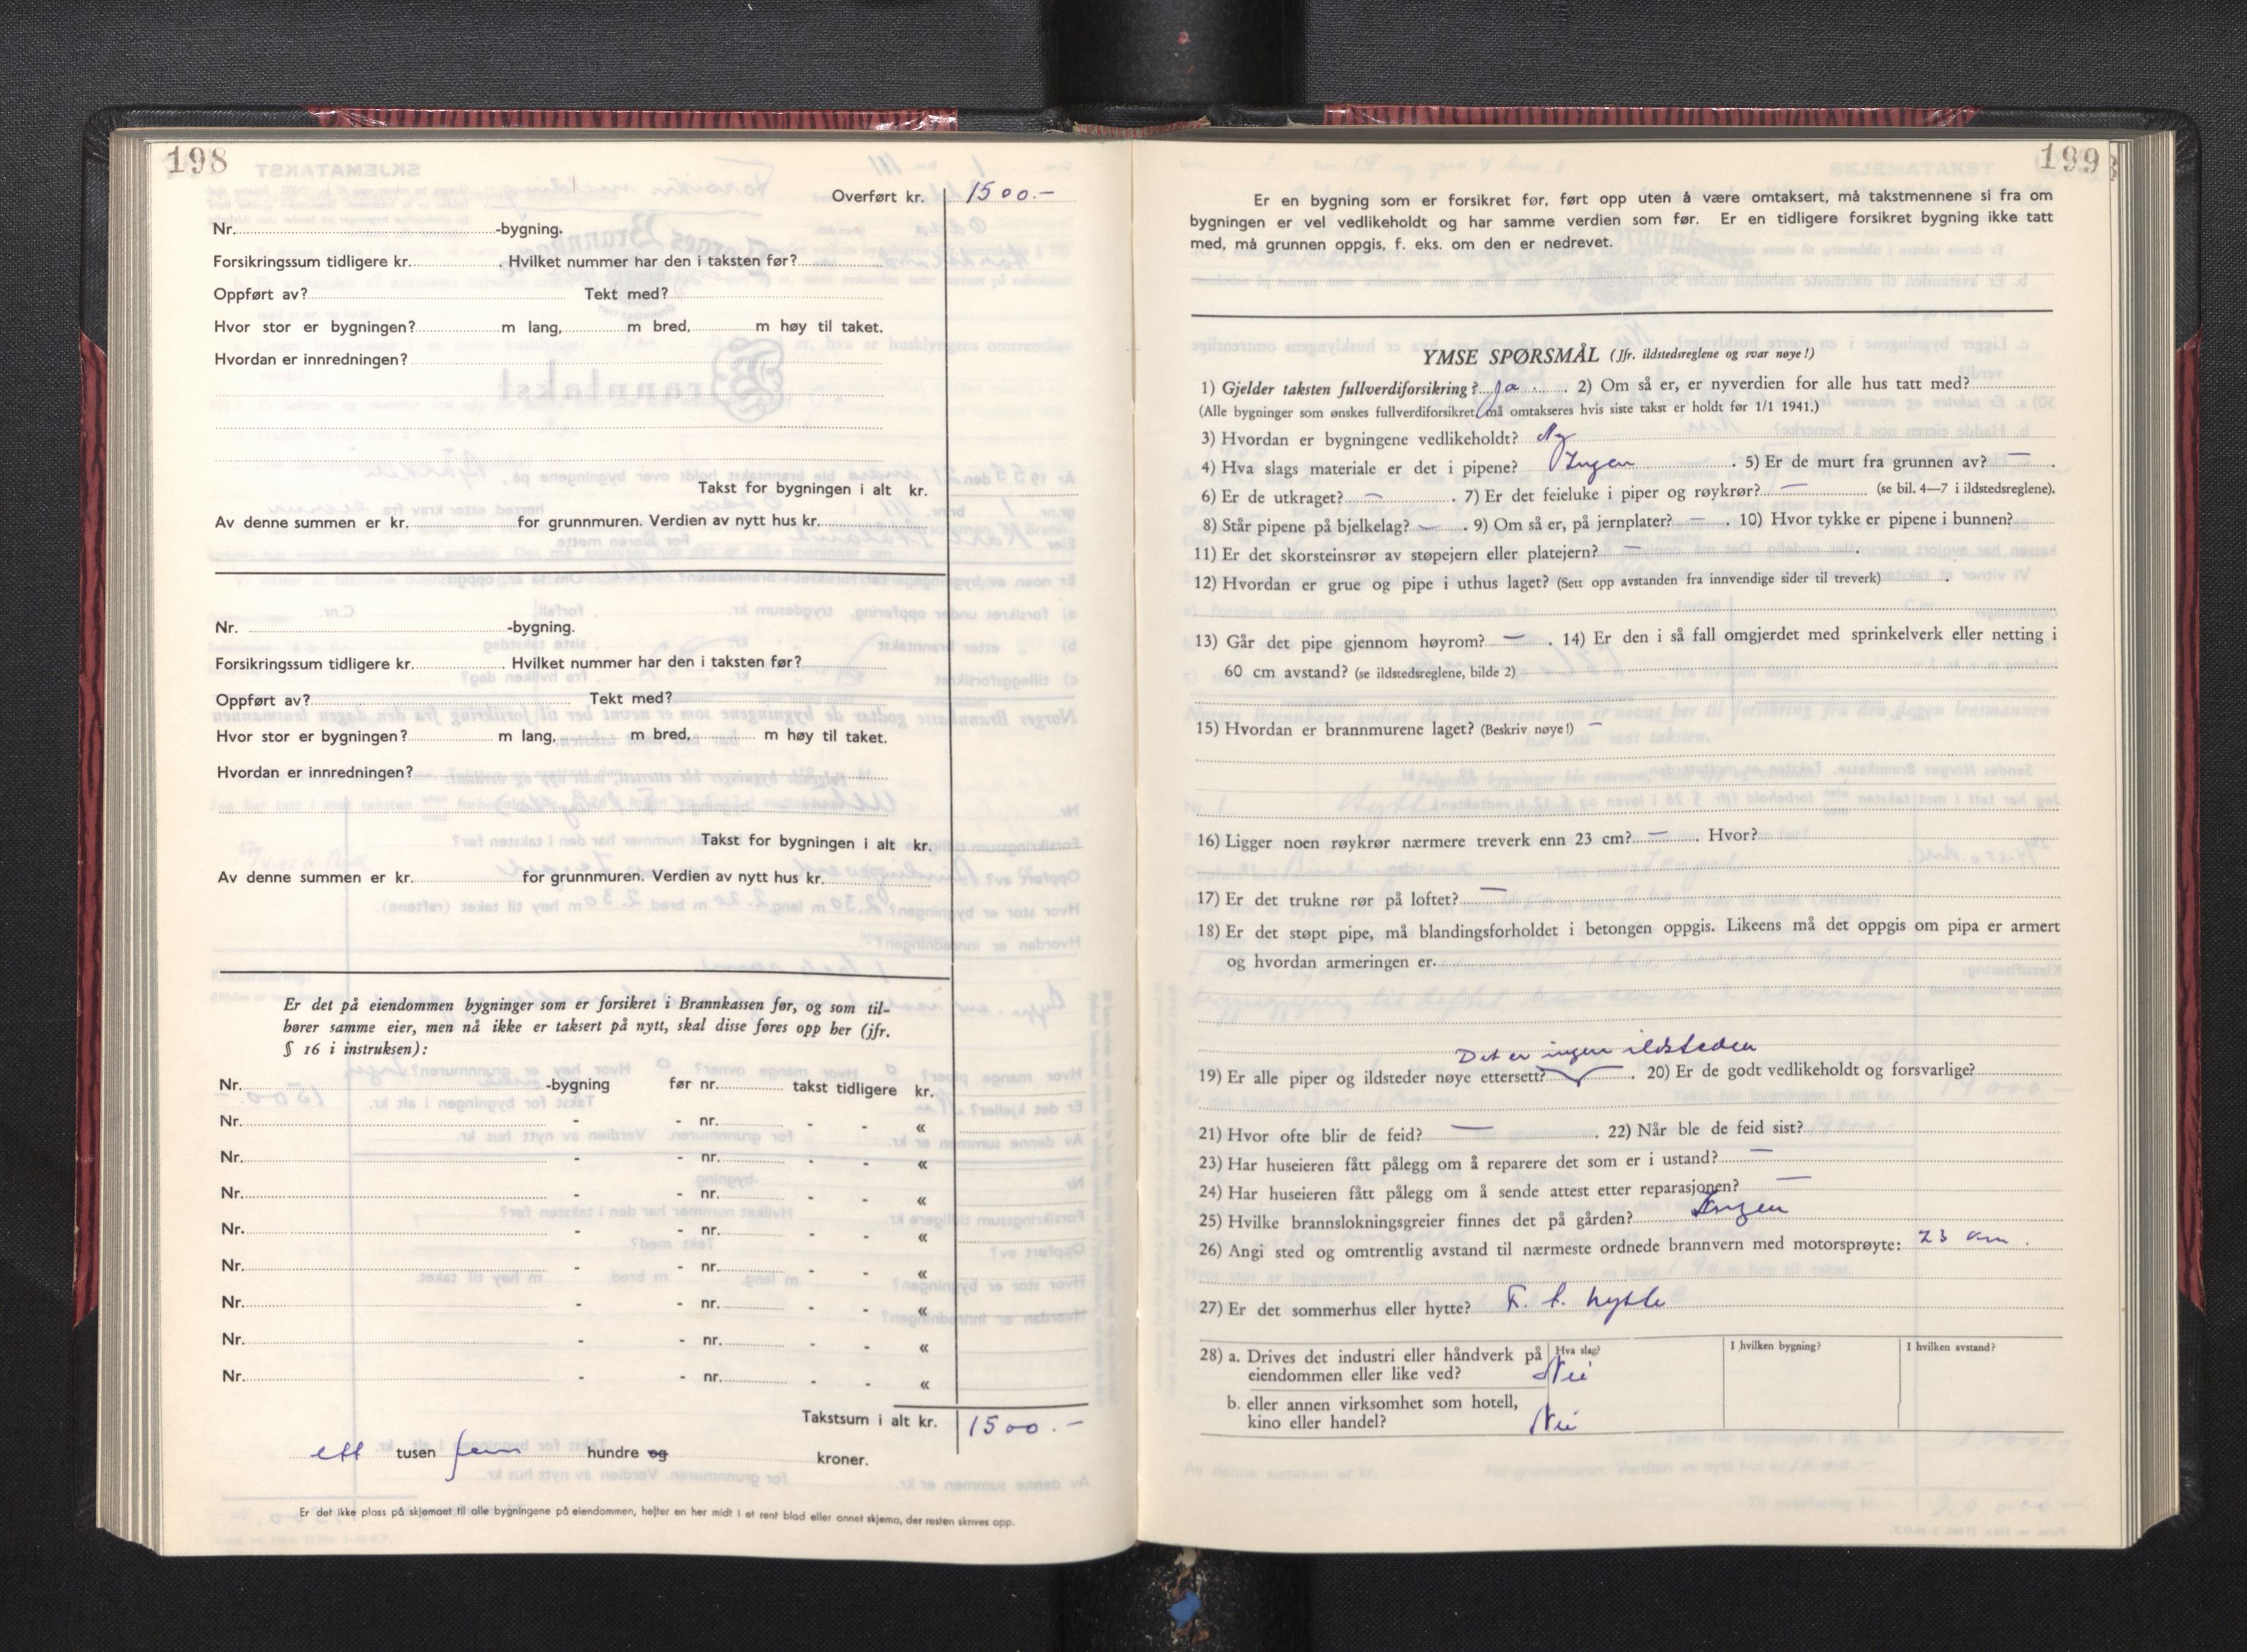 198
Overført kr. 1500.-
Nr. -bygning.
Forsikringssum tidligere kr. . Hvilket nummer har den i taksten før?
Oppført av? Tekt med?
Hvor stor er bygningen? m lang, m bred, m høy til taket.
Hvordan er innredningen?
Takst for bygningen i alt kr.
Av denne summen er kr. for grunnmuren. Verdien av nytt hus kr.
Nr. -bygning.
Forsikringssum tidligere kr. . Hvilket nummer har den i taksten før?
Oppført av? Tekt med?
Hvor stor er bygningen? m lang, m bred, m høy til taket.
Hvordan er innredningen?
Takst for bygningen i alt kr.
Av denne summen er kr. for grunnmuren. Verdien av nytt hus kr.
Er det på eiendommen bygninger som er forsikret i Brannkassen før, og som til-
hører samme eier, men nå ikke er taksert på nytt, skal disse føres opp her (jfr.
§ 16 i instruksen):
Nr. -bygning før nr. takst tidligere kr.
Nr. - - nr. - - «
Nr. - - nr. - - «
Nr. - - nr. - - «
Nr. - - nr. - - «
Nr. - - nr. - - «
Nr. - - nr. - - «
Nr. - - nr. - - «
Nr. - - nr. - - «
Takstsum i alt kr. 1500.-
ett tusen fem hundre og kroner.
Er det ikke plass på skjemaet til alle bygningene på eiendommen, hefter en her midt i et rent blad eller annet skjema, der resten skrives opp.
199
Er en bygning som er forsikret før, ført opp uten å være omtaksert, må takstmennene si fra om
bygningen er vel vedlikeholdt og har samme verdien som før. Er en tidligere forsikret bygning ikke tatt
med, må grunnen oppgis, f. eks. om den er nedrevet.
YMSE SPØRSMÅL (Jfr. ildstedsreglene og svar nøye!)
1) Gjelder taksten fullverdiforsikring? Ja . 2) Om så er, er nyverdien for alle hus tatt med?
(Alle bygninger som ønskes fullverdiforsikret, må omtakseres hvis siste takst er holdt før 1/1 1941.)
3) Hvordan er bygningene vedlikeholdt? Ny
4) Hva slags materiale er det i pipene? Ingen . 5) Er de murt fra grunnen av? — .
6) Er de utkraget? — . 7) Er det feieluke i piper og røykrør? — (se bil. 4—7 i ildstedsreglene).
8) Står pipene på bjelkelag? — . 9) Om så er, på jernplater? — . 10) Hvor tykke er pipene i bunnen?
11) Er det skorsteinsrør av støpejern eller platejern? — .
12) Hvordan er grue og pipe i uthus laget? (Sett opp avstanden fra innvendige sider til treverk) .
13) Går det pipe gjennom høyrom? — . 14) Er den i så fall omgjerdet med sprinkelverk eller netting i
60 cm avstand? (se ildstedsreglene, bilde 2)
15) Hvordan er brannmurene laget? (Beskriv nøye!) —
16) Ligger noen røykrør nærmere treverk enn 23 cm? — . Hvor?
17) Er det trukne rør på loftet? —
18) Er det støpt pipe, må blandingsforholdet i betongen oppgis. Likeens må det oppgis om pipa er armert
og hvordan armeringen er.
Det er ingen ildsteder
19) Er alle piper og ildsteder nøye ettersett? . 20) Er de godt vedlikeholdt og forsvarlige?
21) Hvor ofte blir de feid? — . 22) Når ble de feid sist?
23) Har huseieren fått pålegg om å reparere det som er i ustand? —
24) Har huseieren fått pålegg om å sende attest etter reparasjonen? —
25) Hvilke brannslokningsgreier finnes det på gården? Ingen
26) Angi sted og omtrentlig avstand til nærmeste ordnede brannvern med motorsprøyte: 23 km.
27) Er det sommerhus eller hytte? F. t. hytte
28) a. Drives det industri eller håndverk på Hva slag? I hvilken bygning? I hvilken avstand?
eiendommen eller like ved? Nei
b. eller annen virksomhet som hotell,
kino eller handel? Nei